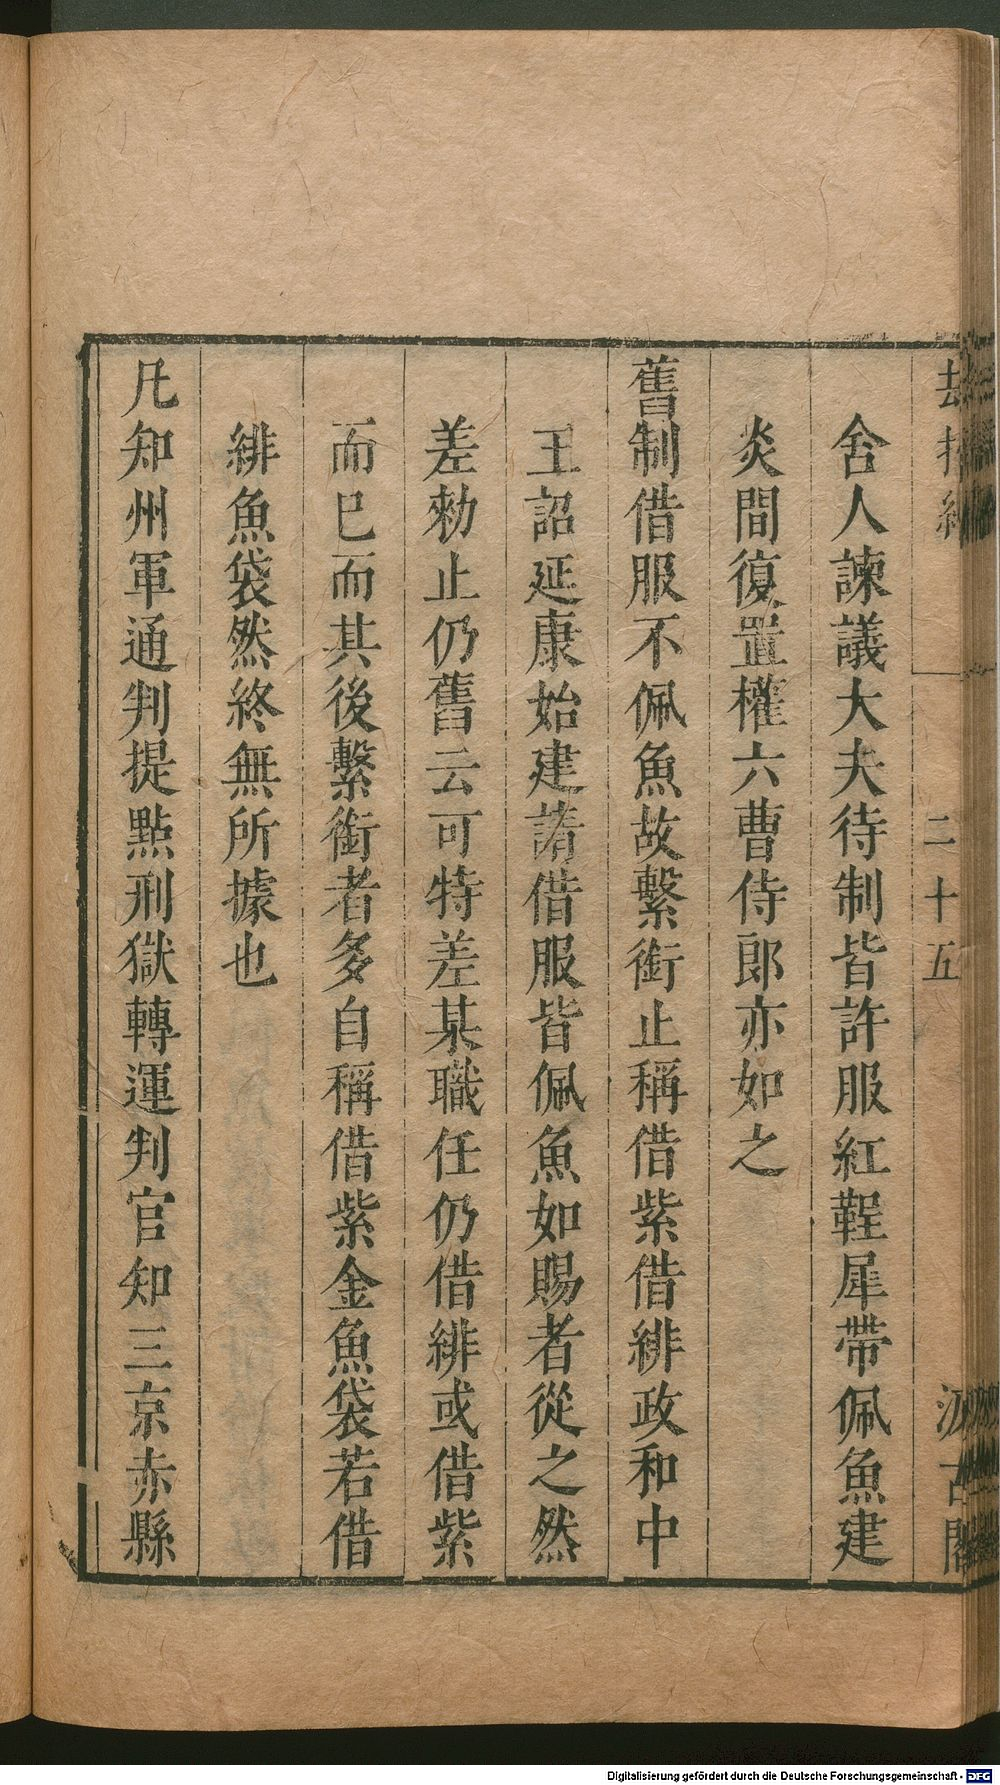 二十五
汲古閣
舍人諫議大夫待制皆許服紅鞓犀帶佩魚建
炎間復置權六曹侍郎亦如之
舊制借服不佩魚故繫銜止稱借紫借緋政和中
王詔延康始建請借服皆佩魚如賜者從之然
差勑止仍舊云可特差某職任仍借緋或借紫
而巳而其後繫銜者多自稱借紫金魚袋若借
緋魚袋然終無所據也
凡知州軍通判提㸃刑獄轉運判官知三京赤縣
Digitalisierung gefördert durch die Deutsche Forschungsgemeinschaft - DFG